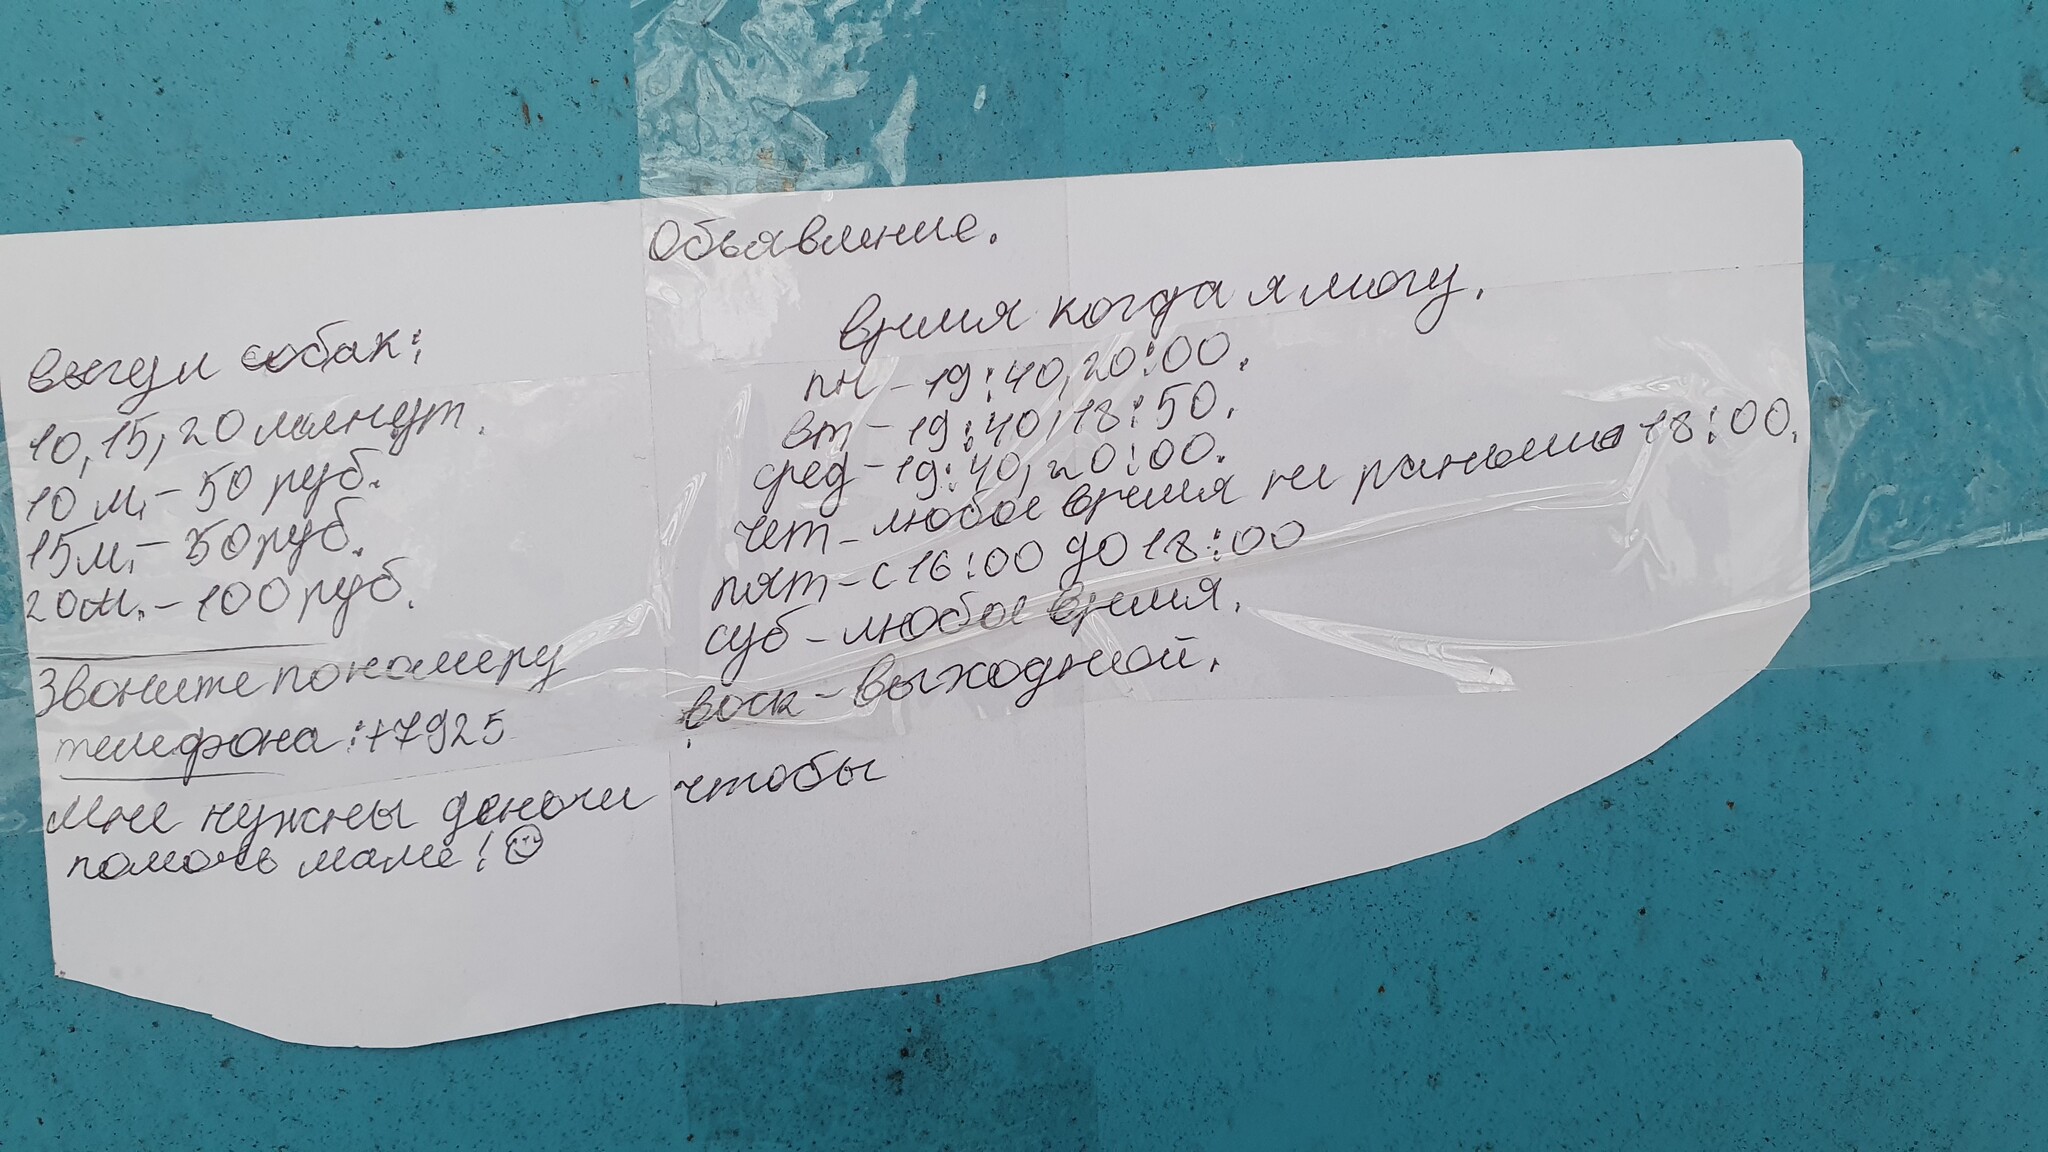 Обьявление.
выгул собак:
10, 15, 20 минут.
10 м. – 50 руб.
15 м. – 50 руб.
20 м. – 100 руб.
Звоните по номеру
телефона: +7925
Мне нужны деньги чтобы
помочь маме!
Время когда я могу.
пн – 19:40, 20:00.
вт – 19:40, 18:50.
сред – 19:40, 20:00.
чет – любое время не раньше 18:00.
пят – с 16:00 до 18:00
суб – любое время.
воск – выходной.